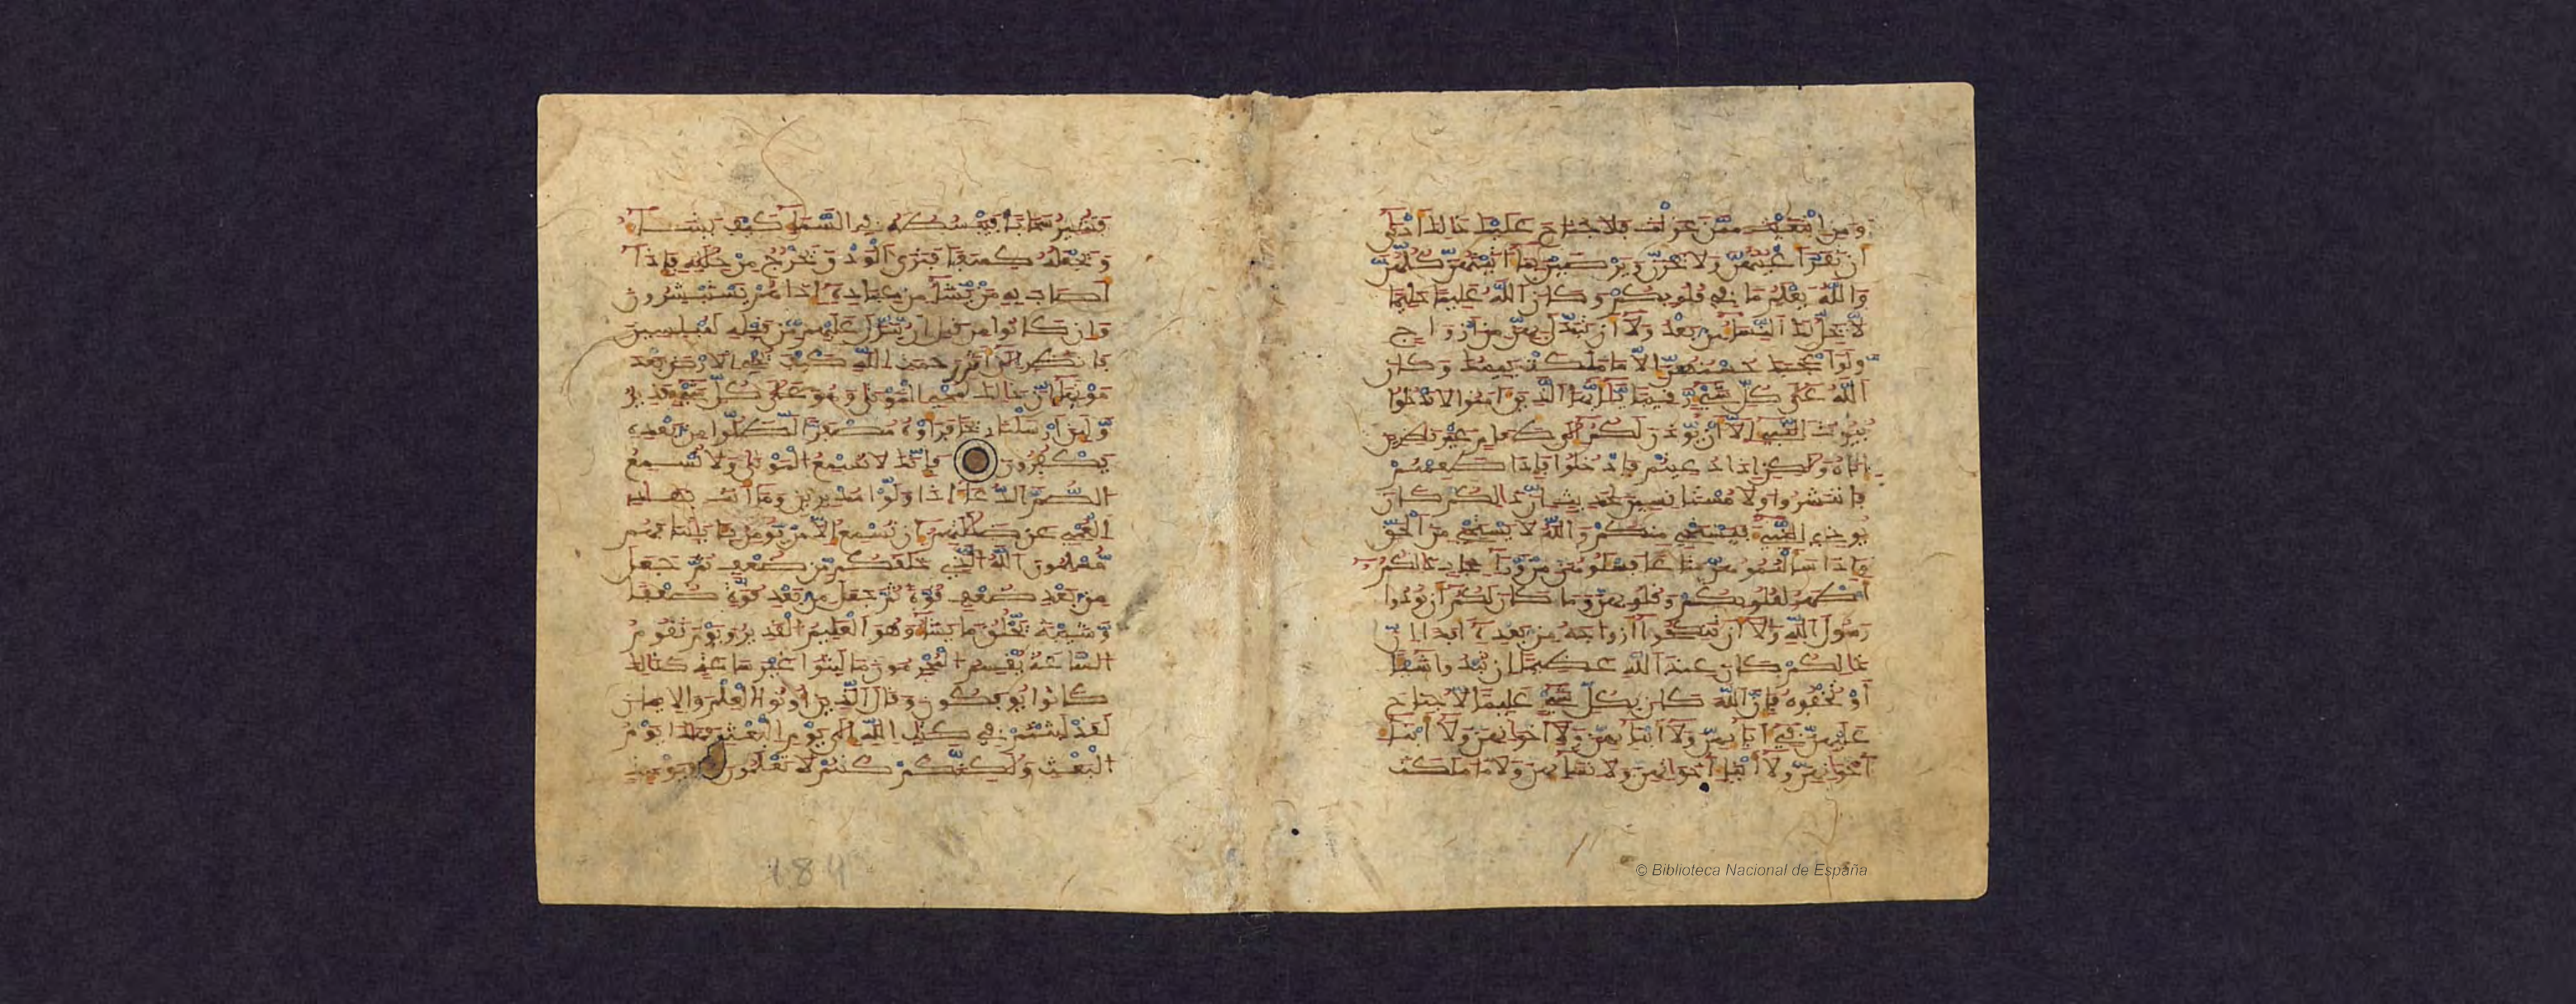 ومن ابتغيت ممن عزلت فلا جناح عليك ذالك أدنى
أن تقر أعينهن ولا يحزن ويرضين بما أتيتهن كلهن
والله يعلم ما في قلوبكم وكان الله عليما حليما
لا يحل لك النساء من بعد ولا أن تبدل بهن من أزواج
ولو أعجبك حسنهن إلا ما ملكت يمينك وكان
الله على كل شيء رقيبا يأيها الذين امنوا لا تدخلوا
بيوت النبيء إلا أن يوذن لكم إلى طعام غير نظرين
إناه ولكن إذا دعيتم فادخلوا فإذا طعمتم
فانتشروا ولا مستانسين لحديث إن ذالكم كان
يوذي النبيء فيستحي منكم والله لا يستحي من الحق
وإذا سألتموهن متاعا فسلوهن من وراء حجاب ذالكم
أطهر لقلوبكم وقلوبهن وما كان لكم أن توذوا
رسول الله ولا أن تنكحوا أزواجه من بعده أبدا إن
ذالكم كان عند الله عظيما إن تبدوا شيئا
أو تخفوه فإن الله كان بكل شيء عليما لا جناح
عليهن في آبائهن ولا أبنائهن ولا إخوانهن ولا أبناء
إخوانهن ولا أبناء أخواتهن ولا نسائهن ولا ما ملكت
فتثير سحابا فيبسطه في السماء كيف يشاء
ويجعله كسفا فترى الودق يخرج من خلله فإذا
أصاب به من يشاء من عباده إذا هم يستبشرون
وإن كانوا من قبل أن ينزل عليهم من قبله لمبلسين
فانظر إلى أثر رحمت الله كيف يحي الارض بعد
موتها إن ذالك لمحي الموتى وهو على كل شيء قدير
ولين أرسلنا ريحا فرأوه مصفرا لظلوا من بعده
يكفرون فإنك لا تسمع الموتى ولا تسمع
الصم الدعاء اذا ولوا مدبرين وما أنت بهاد
العمي عن ضلالتهم إن تسمع إلا من يومن بئايتنا فهم
مسلمون الله الذي خلقكم من ضعف ثم جعل
من بعد ضعف قوة ثم جعل من بعد قوة ضعفا
وشيبة يخلق ما يشاء وهو العليم القدير ويوم تقوم
الساعة يقسم المجرمون ما لبثوا غير ساعة كذالك
كانوا يوفكون وقال الذين أوتوا العلم والإيمان
لقد لبثتم في كتاب الله إلى يوم البعث فهذا يوم
البعث ولكنكم كنتم لا تعلمون فيومئذ
184
© Biblioteca Nacional de España